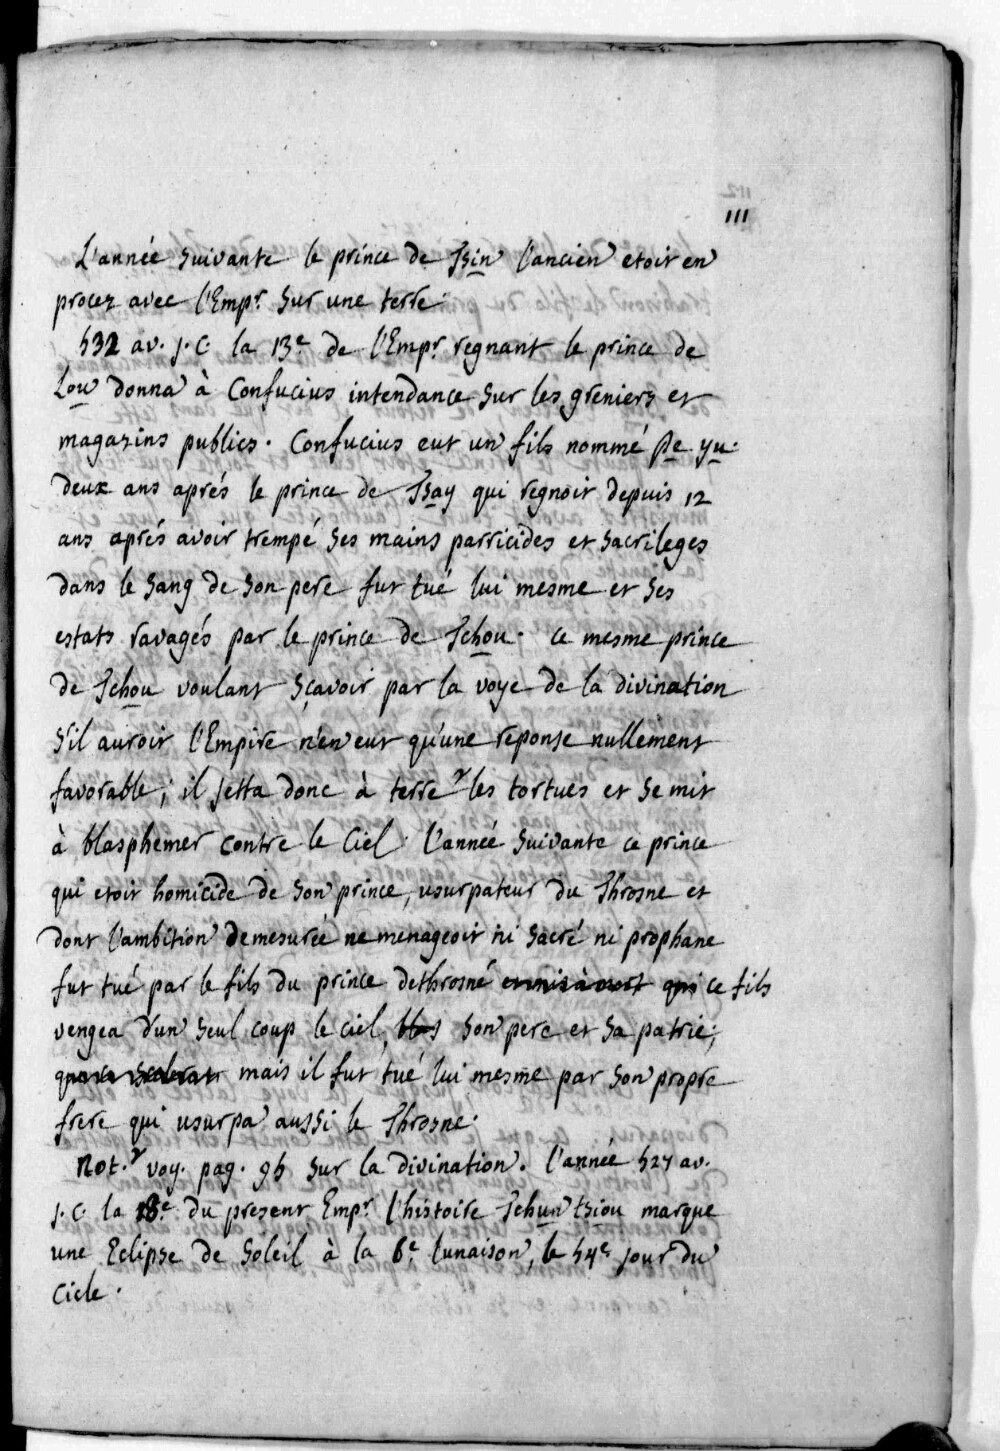 111
L'année suivante le prince de Tsin l'ancien etoit en
procez avec l'Empr. sur une terre.
532 av. J.C. la 13e de l'Empr. regnant le prince de
Lou donna à Confucius intendance sur les greniers et
magazins publics. Confucius eut un fils nommé Pe yu.
deux ans aprés le prince de Tsay qui regnoit depuis 12
ans aprés avoir trempé ses mains parricides et sacrileges
dans le sang de son pere fut tué lui mesme et ses
estats ravagés par le prince de Tchou. ce mesme prince
de Tchou voulant sçavoir par la voye de la divination
s'il auroit l'Empire n'en eut qu'une reponse nullement
favorable; il jetta donc à terre les tortues et se mit
à blasphemer contre le Ciel. l'année suivante ce prince
qui etoit homicide de son prince, usurpateur du Throsne et
dont l'ambition demesurée ne menageoit ni sacré ni prophane
fut tué par le fils du prince dethrosné et mis à mort qui ce fils
vengea d'un seul coup le ciel, son pere et sa patrie;
mais il fut tué lui mesme par son propre
frere qui usurpa aussi le Throsne.
not. voy. pag. 95 sur la divination. l'année 527 av.
J.C. la 18e du present Empr. l'histoire Tchun tsiou marque
une Eclipse de Soleil à la 6e lunaison, le 54e jour du
Cicle.